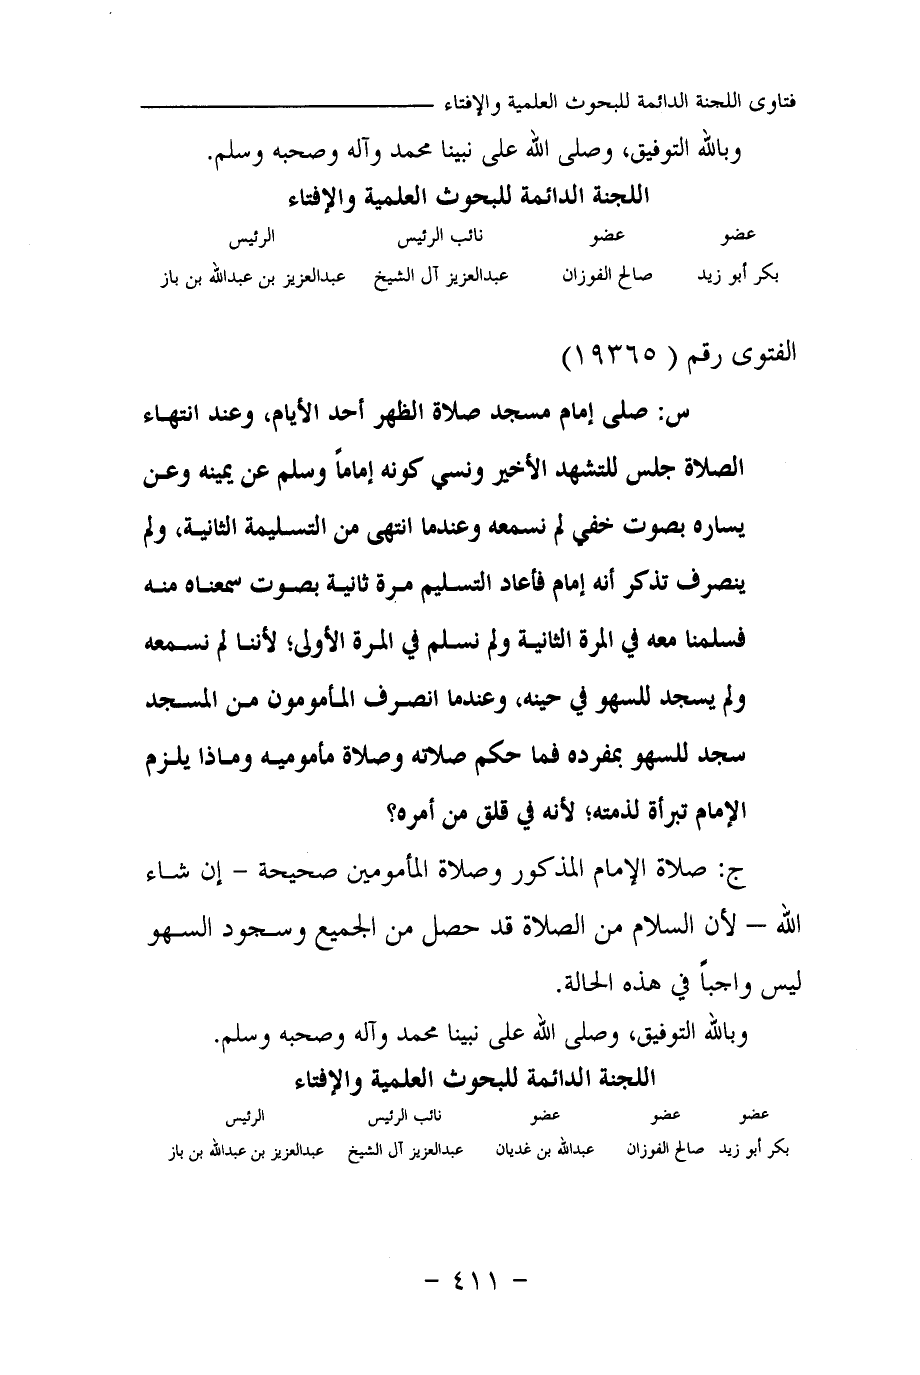 فتاوى اللجنة الدائمة للبحوث العلمية والإفتاء
وبالله التوفيق، وصلى الله على نبينا محمد وآله وصحبه وسلم.
اللجنة الدائمة للبحوث العلمية والإفتاء
عضو عضو نائب الرئيس الرئيس
بكر أبو زيد صالح الفوزان عبدالعزيز آل الشيخ عبدالعزيز بن عبدالله بن باز
الفتوى رقم ( ١٩٣٦٥)
س: صلى إمام مسجد صلاة الظهر أحد الأيام، وعند انتهاء
الصلاة جلس للتشهد الأخير ونسي كونه إماماً وسلم عن يمينه وعن
يساره بصوت خفي لم نسمعه وعندما انتهى من التسليمة الثانية، ولم
ينصرف تذكر أنه إمام فأعاد التسليم مرة ثانية بصوت سمعناه منه
فسلمنا معه في المرة الثانية ولم نسلم في المرة الأولى؛ لأننا لم نسمعه
ولم يسجد للسهو في حينه، وعندما انصرف المأمومون من المسجد
سجد للسهو بمفرده فما حكم صلاته وصلاة مأموميه وماذا يلزم
الإمام تبرأة لذمته؛ لأنه في قلق من أمره؟
ج: صلاة الإمام المذكور وصلاة المأمومين صحيحة – إن شاء
الله – لأن السلام من الصلاة قد حصل من الجميع وسجود السهو
ليس واجباً في هذه الحالة.
وبالله التوفيق، وصلى الله على نبينا محمد وآله وصحبه وسلم.
اللجنة الدائمة للبحوث العلمية والإفتاء
عضو عضو عضو نائب الرئيس الرئيس
بكر أبو زيد صالح الفوزان عبدالله بن غديان عبدالعزيز آل الشيخ عبدالعزيز بن عبدالله بن باز
– ٤١١ –